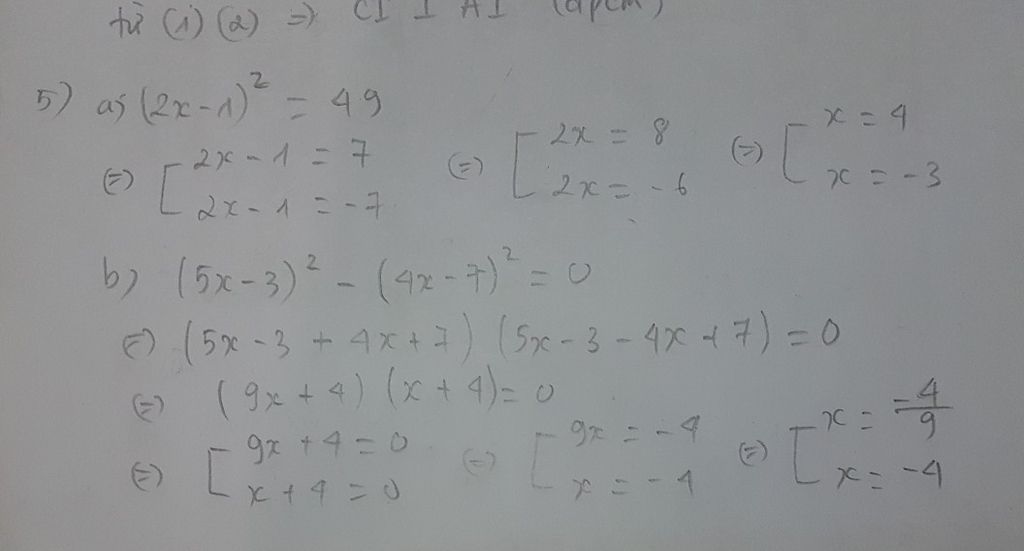 từ (1) (2) => CI ⊥ AI (đpcm)
5) a) (2x-1)² = 49
(=) [ 2x - 1 = 7 (=) [ 2x = 8 (=) [ x = 4
2x - 1 = -7 2x = -6 x = -3
b) (5x-3)² - (4x-7)² = 0
(=) (5x - 3 + 4x + 7) (5x - 3 - 4x + 7) = 0
(=) (9x + 4) (x + 4) = 0
(=) [ 9x + 4 = 0 (=) [ 9x = -4 (=) [ x = -4/9
x + 4 = 0 x = -4 x = -4